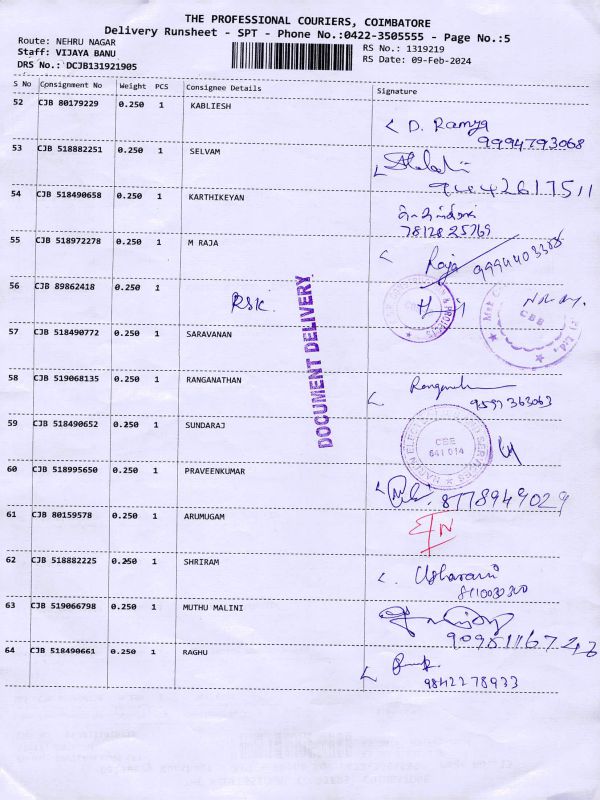 THE PROFESSIONAL COURIERS, COIMBATORE
Delivery Runsheet - SPT - Phone No.:0422-3505555 - Page No.:5
Route: NEHRU NAGAR
Staff: VIJAYA BANU
DRS No.: DCJB131921905
RS No.: 1319219
RS Date: 09-Feb-2024
S No Consignment No Weight PCS Consignee Details Signature
52 CJB 80179229 0.250 1 KABLIESH
D. Ramya
9994793068
53 CJB 518882251 0.250 1 SELVAM
54 CJB 518490658 0.250 1 KARTHIKEYAN
7812825769
55 CJB 518972278 0.250 1 M RAJA
Raja
56 CJB 89862418 0.250 1 RSK.
DOCUMENT DELIVERY
CBB
57 CJB 518490772 0.250 1 SARAVANAN
58 CJB 519068135 0.250 1 RANGANATHAN
9597363063
59 CJB 518490652 0.250 1 SUNDARAJ
CBE
641 014
60 CJB 518995650 0.250 1 PRAVEENKUMAR
8778949029
61 CJB 80159578 0.250 1 ARUMUGAM
62 CJB 518882225 0.250 1 SHRIRAM
Usharani
63 CJB 519066798 0.250 1 MUTHU MALINI
64 CJB 518490661 0.250 1 RAGHU
9842278933